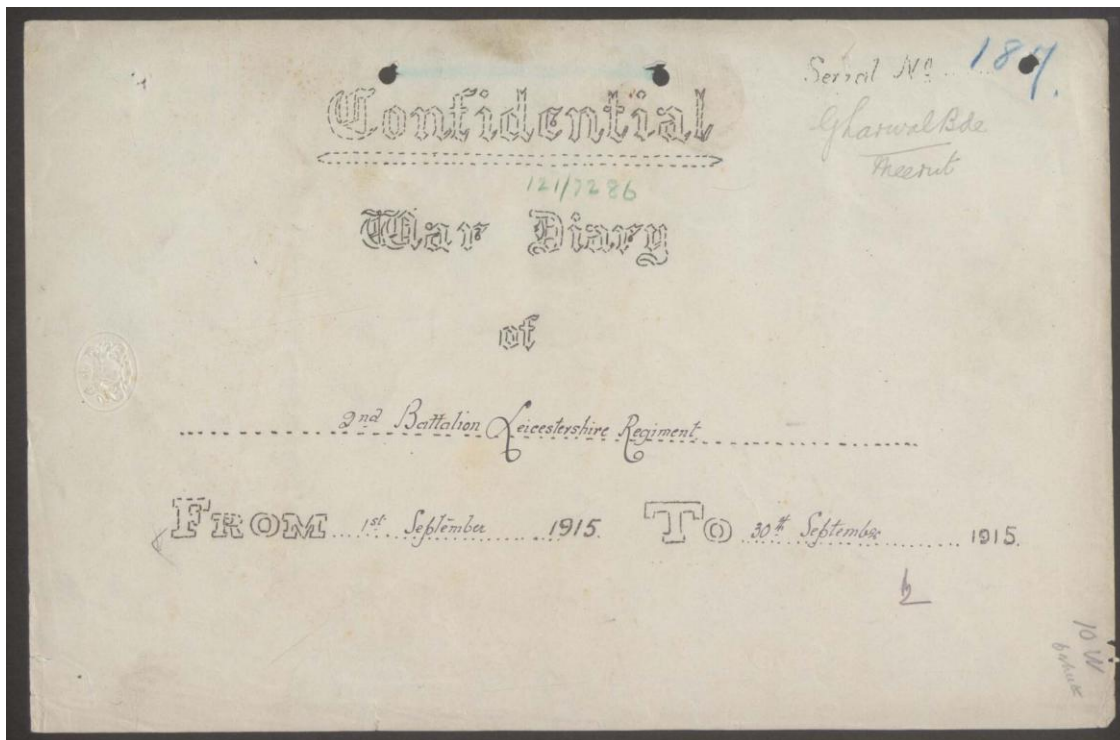 Serial No 187.
Gharwal Bde
Meerut
Confidential
121/7286
War Diary
of
2nd Battalion Leicestershire Regiment
FROM 1st September 1915. To 30th September 1915.
10 W